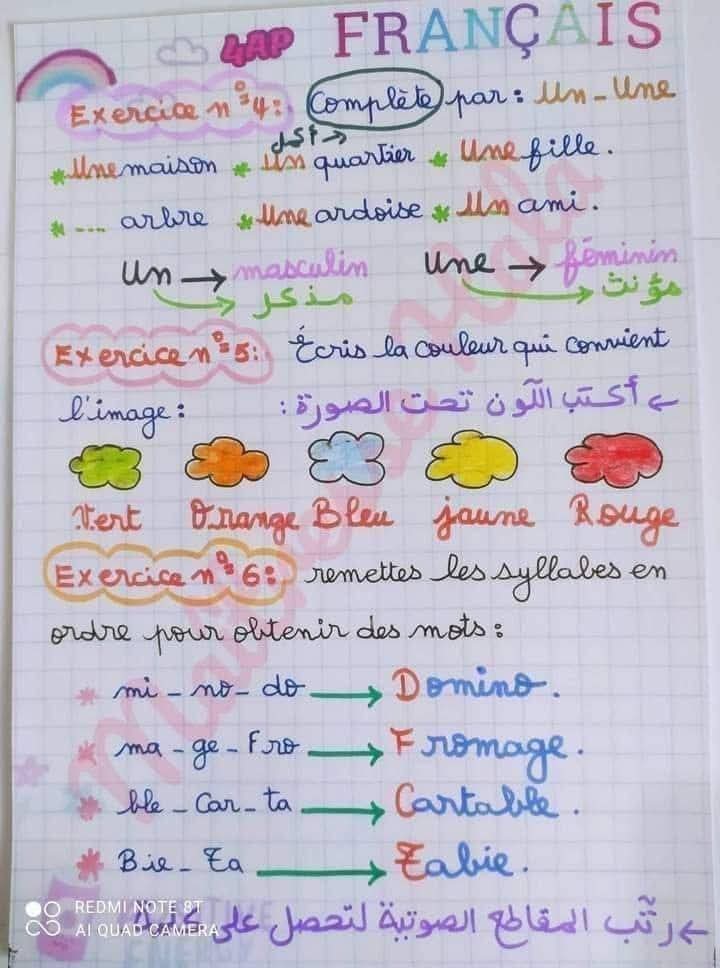 4AP FRANÇAIS
Exercice n°4: Complète par: Un - Une
أكمل
* Une maison * Un quartier * Une fille.
* ... arbre * Une ardoise * Un ami.
Un → masculin Une → féminin
مذكر مؤنث
Exercice n°5: Écris la couleur qui convient
l'image: ← أكتب اللّون تحت الصورة:
Vert Orange Bleu jaune Rouge
Exercice n°6: remettes les syllabes en
ordre pour obtenir des mots:
* mi - no - do → Domino.
* ma - ge - Fro → Fromage.
* ble - Car - ta → Cartable.
* Bie - Ta → Tabie.
← رتّب المقاطع الصوتية لتحصل على كلمة
REDMI NOTE 8T
AI QUAD CAMERA